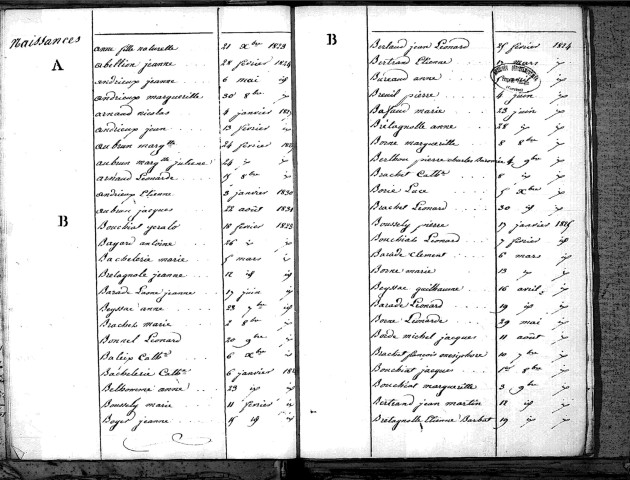 Naissances
A
anne fille naturelle 21 Xbre 1823
abellion jeanne 28 février 1824
andrieux jeanne 6 mai id
andrieux margueritte 30 8bre
arnaud nicolas 4 janvier
andrieux jean 13 février
aubrun margtte 24 février
aubrun margtte juliene 24
arnaud Léonarde 15 8bre
andrieux Etienne 3 janvier 1830
aubrun jacques 22 août 1831
B
Bouchiat 18 février 1823
Bayard antoine 26
Bachelerie marie 5 mars
Bretagnole jeanne 12 id
Barade jeanne 17 juin
Beyssac anne 23 7bre
Brachet marie 2 8bre
Bonnel Léonard 20 9bre
Baleix Cathne 6 Xbre
Bachelerie Cathne 6 janvier
Belhomme anne 23 id
Boussely marie 11 février
Boyer jeanne 15 id
B
Bertaud jean Léonard 25 février 1824
Bertrand Etienne 12 mars
Bureaud anne
Breuil pierre 4 juin
marie 23 juin
Brétagnolle anne 28
Borne margueritte 8 8bre
Berthon pierre charles 4 9bre
Brachet Cathne 8
Borie Luce 5 Xbre
Brachet Léonard 30 id
Boussely pierre 17 janvier 1825
Bouchiat Léonard 7 février id
Barade Clement 6 mars
Borne marie 13
Beyssac guilhaume 16 avril
Barade Léonard 19 id
Borne Léonarde 29 mai
Borde michel jacques 11 août
Brachet onésiphore 10 7bre
Bouchiat jacques 1er 8bre
Bouchiat margueritte 3 9bre
Bertrand jean martin 12 id
Bretagnolle Etienne Barbat 19